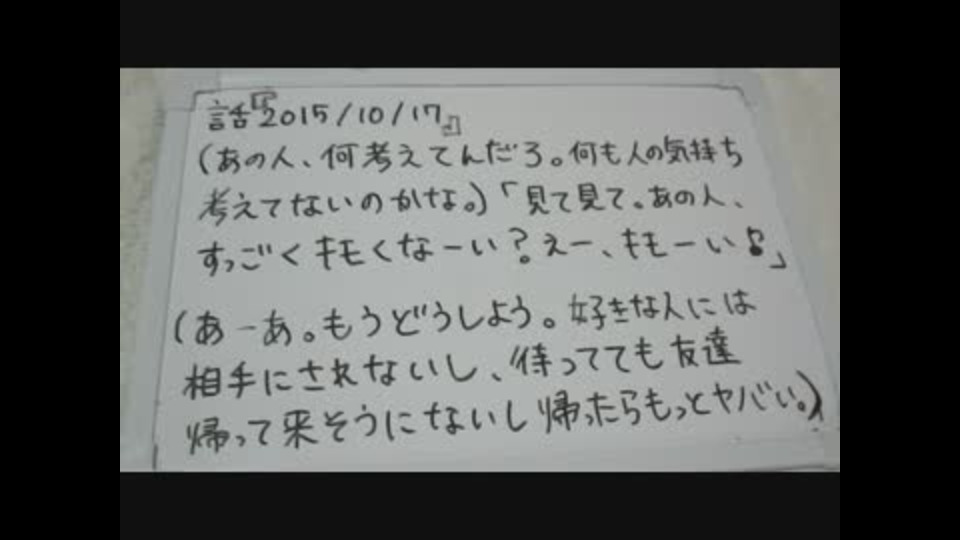 話『2015/10/17』
(あの人、何考えてんだろ。何も人の気持ち
考えてないのかな。)「見て見て。あの人、
すっごくキモくなーい?えー、キモーい♪」
(あーあ。もうどうしよう。好きな人には
相手にされないし、待ってても友達
帰って来そうにないし帰ったらもっとヤバい。)